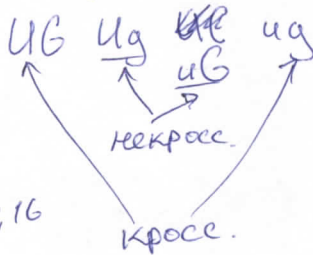 UG Ug ug
uG
некросс.
, 16
кросс.